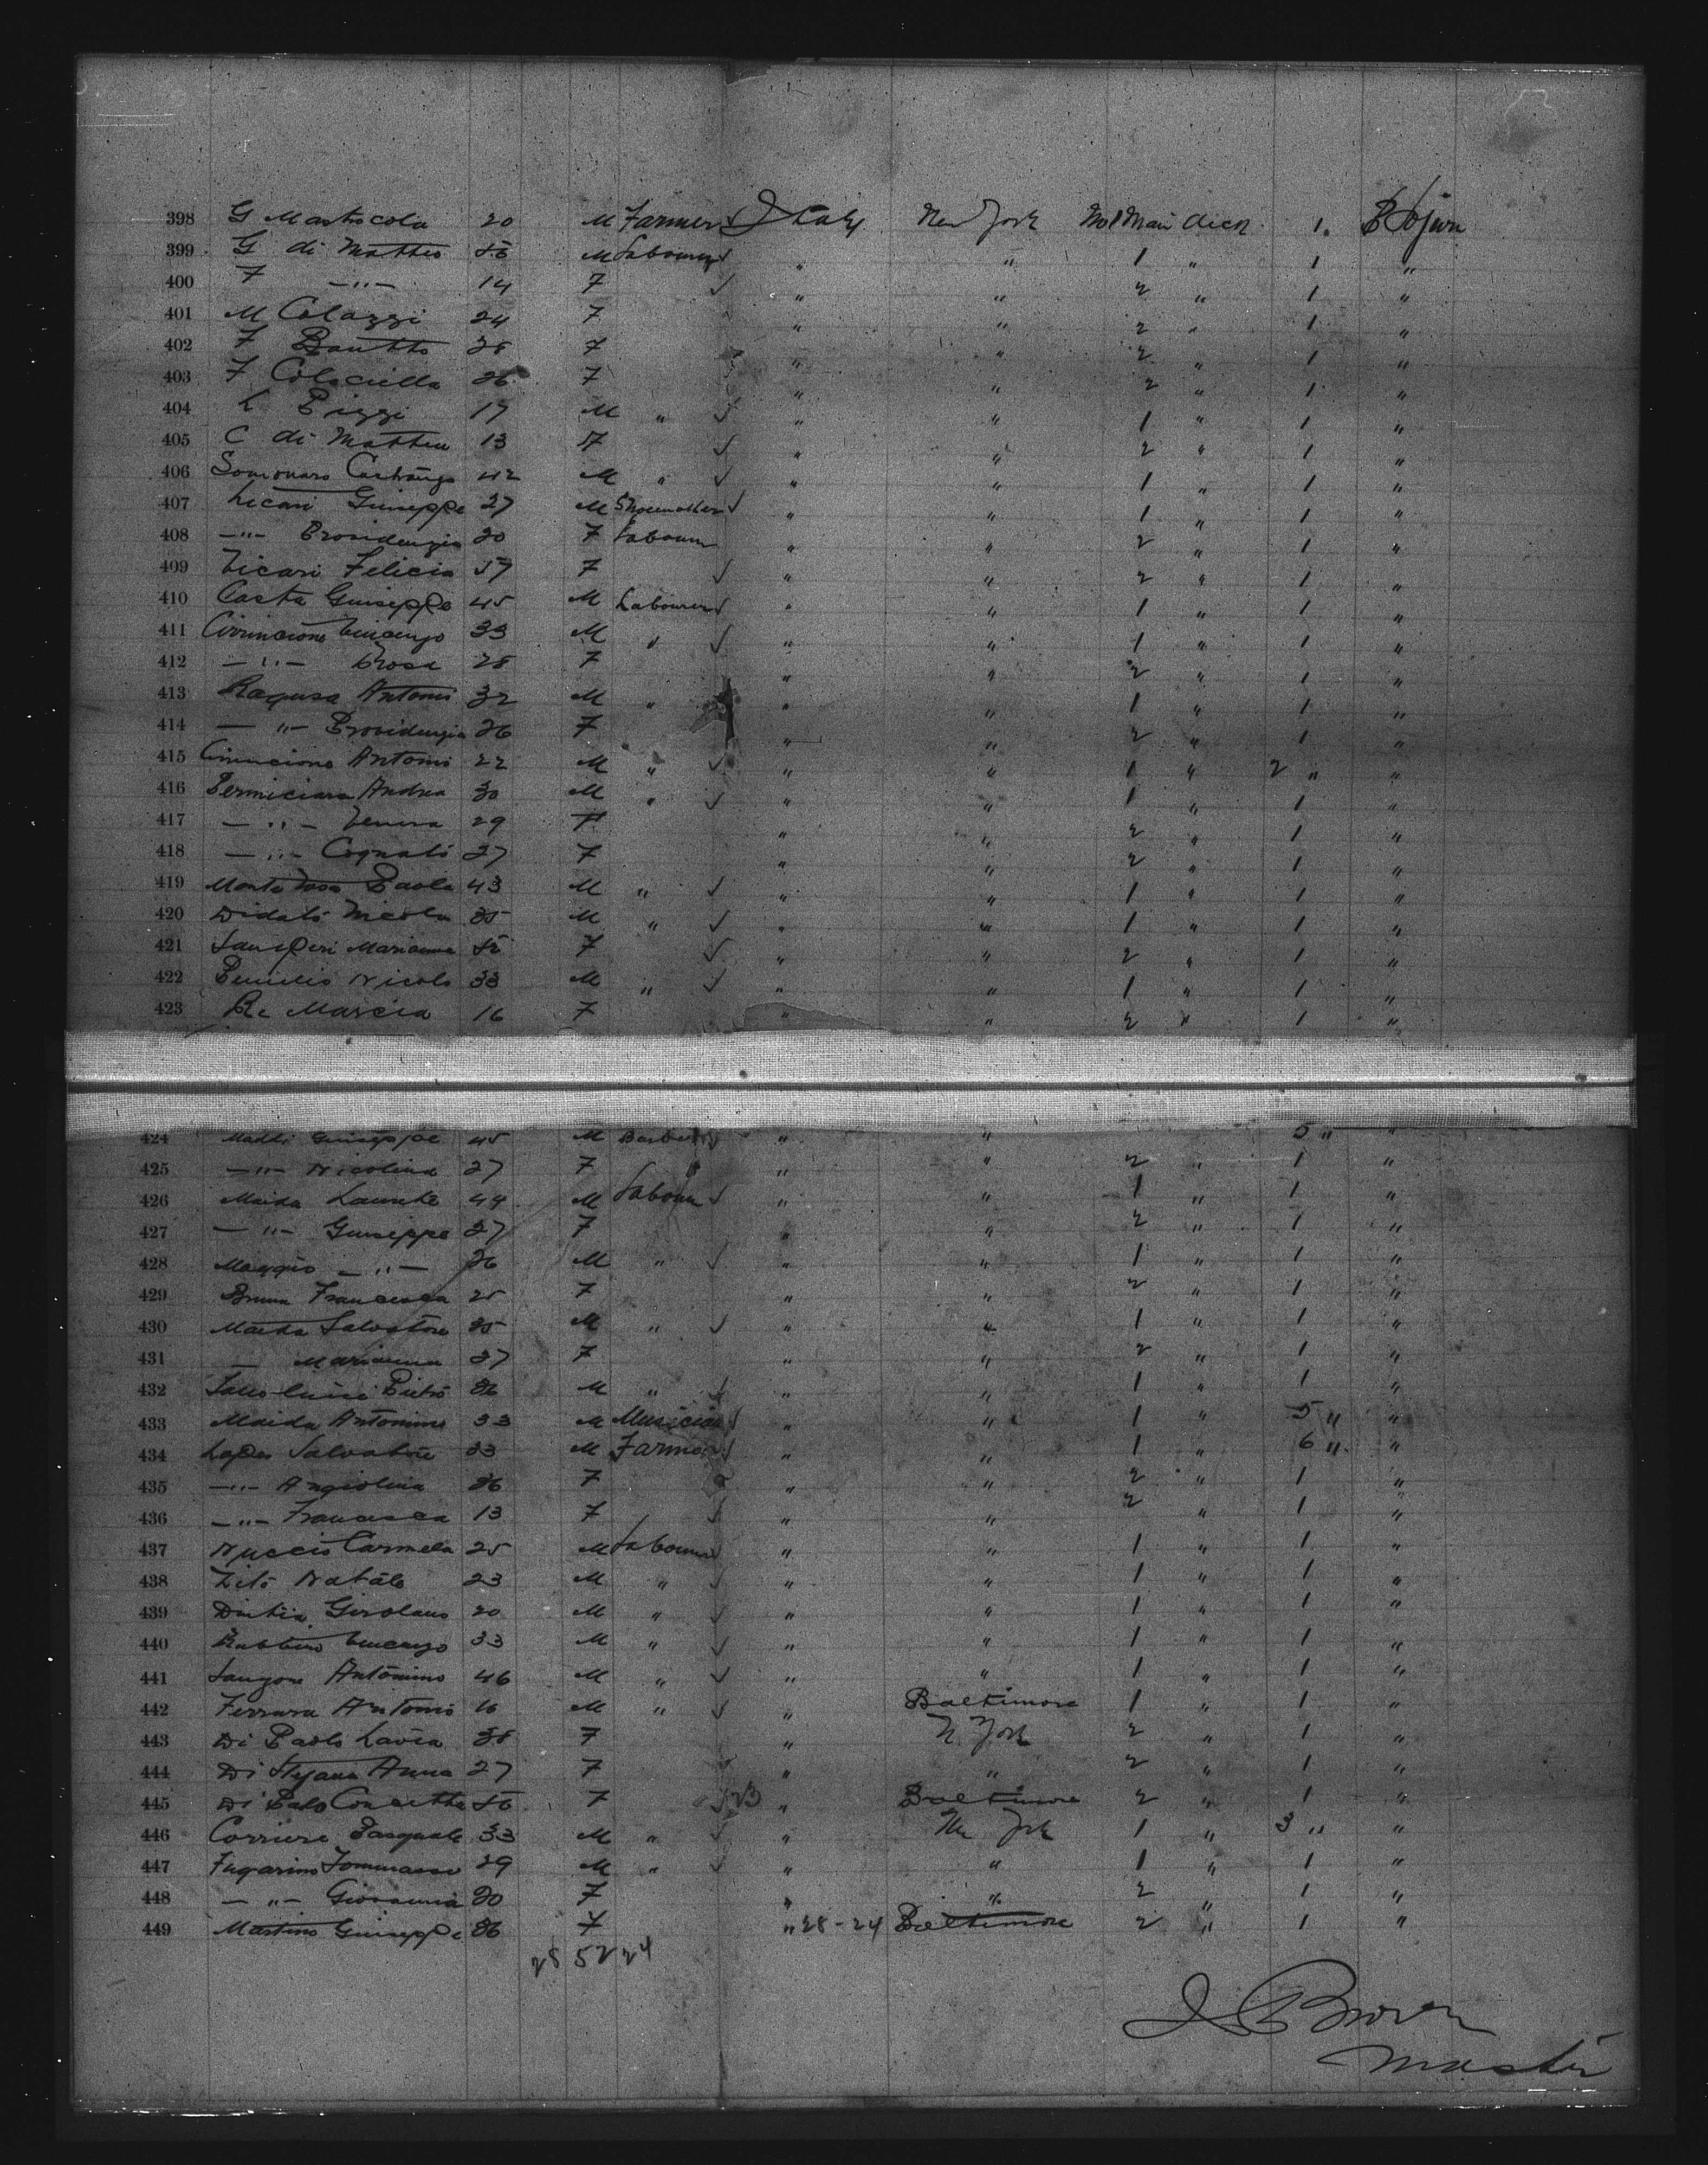 398 G Mastrocola 20 M Farmer Italy New York No 1 Main deck 1 Sojurn
399 G di Matteo M Labourer " " 1 " 1 "
400 F —"— 14 F " " 2 " 1 "
401 M Colazzi 24 F " " 2 " 1 "
402 F 28 F " " 2 " 1 "
403 F Colaciello 26 F " " 2 " 1 "
404 L Pizzi 17 M " " " 1 " 1 "
405 C di Matteo 13 F " " 2 " 1 "
406 42 M " " " 1 " 1 "
407 Licari Giuseppe 27 M Shoemaker " " 1 " 1 "
408 —"— Providenzia 20 F Labourer " " 2 " 1 "
409 Vicari Felicia 57 F " " 2 " 1 "
410 Casta Guiseppe 45 M Labourer " " 1 " 1 "
411 Cirrincione Vincenzo 33 M " " " 1 " 1 "
412 —"— Rosa 28 F " " 2 " 1 "
413 Ragusa Antonio 32 M " " " 1 " 1 "
414 —"— Providenzia 26 F " " 2 " 1 "
415 Cirrincione Antonio 22 M " " " 1 " 2 " "
416 Andrea 30 M " " " 1 " 1 "
417 —"— 29 F " " 2 " 1 "
418 —"— Cognato 27 F " " 2 " 1 "
419 Paola 43 M " " " 1 " 1 "
420 Didato Nicola 35 M " " " 1 " 1 "
421 Marianna F " " 2 " 1 "
422 Nicolo 33 M " " " 1 " 1 "
423 Re Marcia 16 F " " 2 " 1 "
424 Giuseppe 45 M Barber " " 5 " "
425 —"— Nicolina 27 F " " 2 " 1 "
426 Maida 44 M Labourer " " 1 " 1 "
427 —"— Guiseppe 27 F " " 2 " 1 "
428 Maggio —"— 26 M " " " 1 " 1 "
429 Bruna Francesca 25 F " " 2 " 1 "
430 Maida Salvatore 35 M " " " 1 " 1 "
431 — Marianna 27 F " " 2 " 1 "
432 Pietro 36 M " " " 1 " 1 "
433 Maida Antonino 33 M Musician " " 1 " 5 " "
434 Lopes Salvatore 33 M Farmer " " 1 " 6 " "
435 —"— Angiolina 36 F " " 2 " 1 "
436 —"— Francesca 13 F " " 2 " 1 "
437 Nuccio Carmela 25 M Labourer " " 1 " 1 "
438 Zito Natale 23 M " " " 1 " 1 "
439 Girolamo 20 M " " " 1 " 1 "
440 Vincenzo 33 M " " " 1 " 1 "
441 Sangone Antonino 46 M " " " 1 " 1 "
442 Ferrara Antonio 16 M " " Baltimore 1 " 1 "
443 Di Paolo 38 F " N. York 2 " 1 "
444 Di Stefana Anna 27 F " " 2 " 1 "
445 Di Palo Concetta F " Baltimore 2 " 1 "
446 Corriere Pasquale 33 M " " New York 1 " 3 " "
447 Fugarino Tommasso 29 M " " " 1 " 1 "
448 —"— Giovanna 30 F " " 2 " 1 "
449 Martino Guiseppe 36 F " 28-24 Baltimore 2 " 1 "
28 52 24
Brown
Master